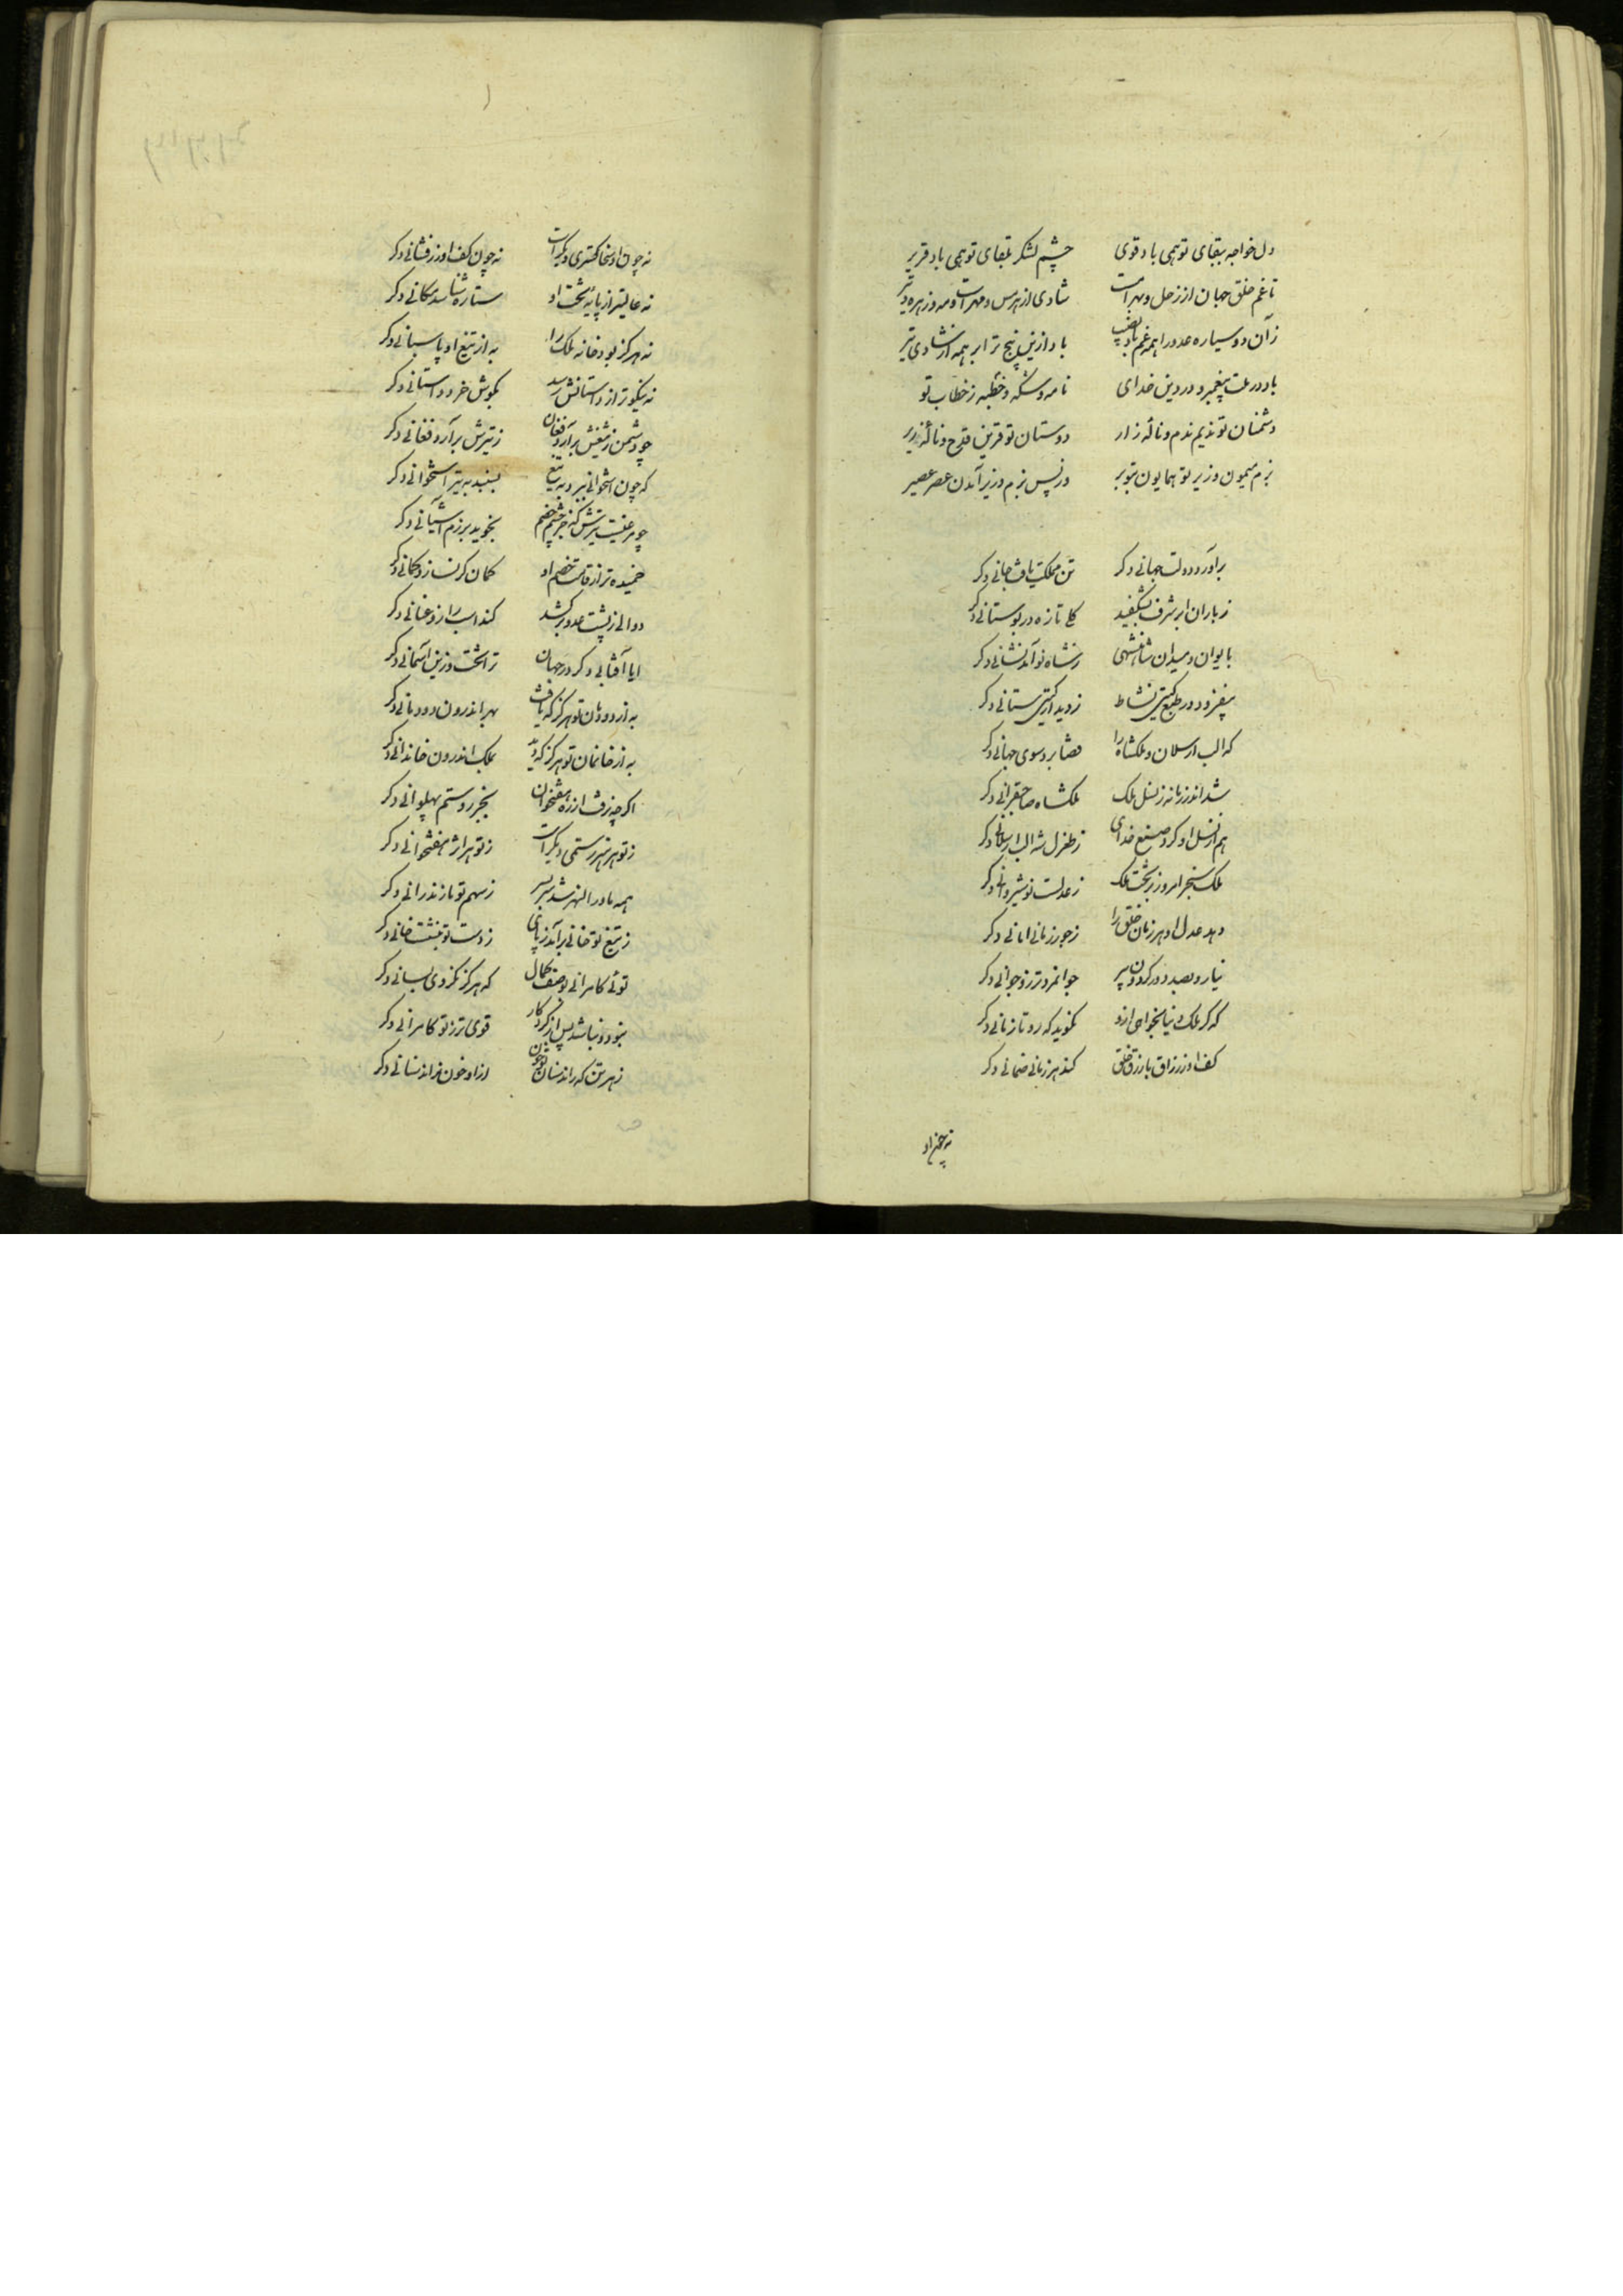 دل خواجه ببقای تو همی باد قوی چشم لشکر بلقای تو همی باد قریر
تا غم خلق جهان از زحل و بهرامست شادی از هرمس و مهرست و مه و زهره و تیر
زان دو سیاره عدو را همه غم باد نصیب باد ازین پنج ترا بر همه از شادی تیر
باد در ملت پیغمبر و در دین خدای نامه و سکه و خطبه ز خطاب تو
دشمنان تو ندیم ندم و نالهٔ زار دوستان تو قرین قدح و نالهٔ زیر
بزم میمون وزیر تو همایون بتو بر در پس بزم وزیر آمدن عصر عصیر
برآورد دولت جهانی دکر تن مملکت یافت جانی دکر
ز باران ابر شرف بشکفید کلی تازه در بوستانی دکر
بایوان و میدان شاهنشهی ز شاه نو آمد نشانی دکر
بیفزود در طبع کیتی نشاط ز دیدار کیتی ستانی دکر
که الب ارسلان و ملکشاه را قضا برد سوی جهانی دکر
شد اندر زمانه ز نسل ملک ملکشاه صاحبقرانی دکر
هم از نسل او کرد صنع خدای ز طغرل شه الب ارسلانی دکر
ملک سنجر امروز بر تخت ملک ز عدلست نوشیروانی دکر
دهد عدل او هر زمان خلق را ز جور زمانی امانی دکر
نیارد بصد دور کردون پیر جوانمردتر زو جوانی دکر
که کر ملک دنیا بخواهی ازو نکوید که رو تا زمانی دکر
کف او ز رزاق با رزق خلق کند هر زمانی ضمانی دکر
نه چون او
نه چون او سخا کستری دیکرست نه چون کف او زرفشانی دکر
نه عالیتر از پایهٔ تخت او ستاره شناسد مکانی دکر
نه هرکز بود خانه ملک را به از تیغ او پاسبانی دکر
نه نیکوتر از داستانش رسد بکوش خرد داستانی دکر
چو دشمن ز تیغش برآرد فغان ز تیرش برآرد فغانی دکر
که چون استخوانی ببرد به تیغ بسنبد به تیر استخوانی دکر
چو مرغیست تیرش کز چشم خصم بجوید برزم آشیانی دکر
خمیده‌تر از قامت خصم او کمان‌کر نسازد کمانی دکر
دوالی ز پشت عدو برکشد کند اسب را زو عنانی دکر
ایا آفتابی دکر در جهان ترا تخت زرین آسمانی دکر
به از دودمان تو هرکز که یافت بهر اندرون دودمانی دکر
به از خانمان تو هرکز که دید بملک اندرون خاندانی دکر
اکرچه نرفت از ره هفتخوان بخبر رو ستم پهلوانی دکر
ز تو هر هنر رستمی دیکرست ز تو هر اثر هفتخوانی دکر
همه ماوراالنهر شد سربسر ز سهم تو مازندرانی دکر
ز تیغ تو خانی برآمد ز پای ز دست تو بنشست خانی دکر
توئی کامرانی بوصف کمال که هرکز نکردی بسانی دکر
نبود و نباشد پس از کردکار قوی‌تر ز تو کامرانی دکر
ز هر تن که راند سنان تو خون ازو خون نراند سنانی دکر